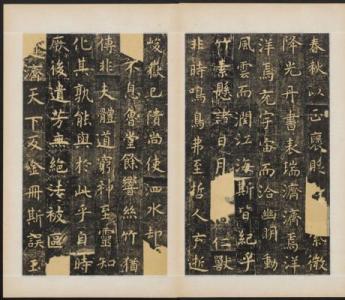 春秋以正褒貶紫微
降光丹書表瑞濟濟焉洋
洋焉充宇宙而洽幽明動
風雲而潤江海斯皆紀乎
竹素懸諸日月仁獸
非時鳴鳥弗至哲人云逝
峻嶽已隤尚使泗水却
不息魯堂餘響絲竹猶
傳非夫體道窮神至靈知
化其孰能與於此乎自時
厥後遺芳無絶法被區
濟天下及金冊斯誤玉